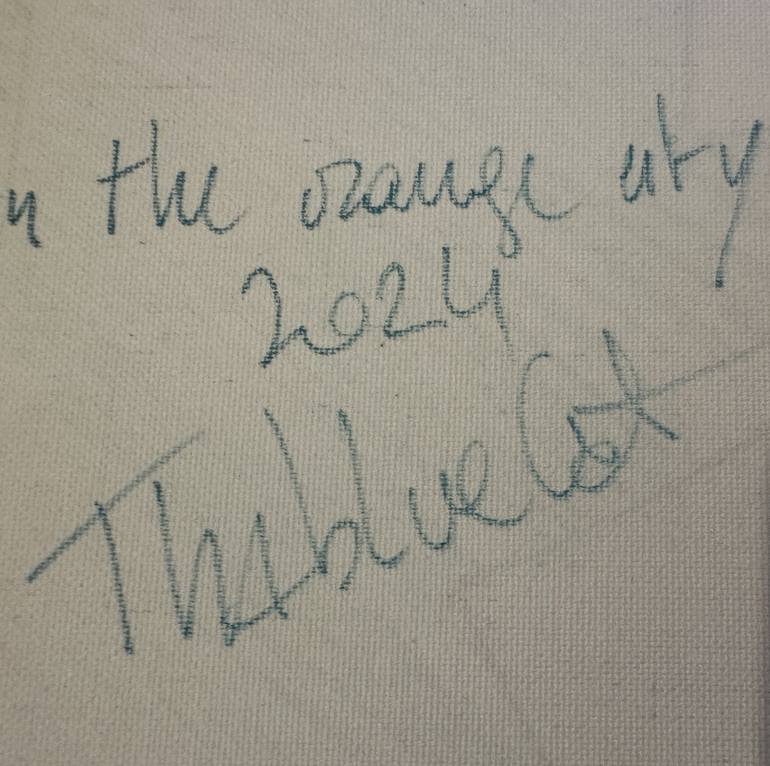 n the orange city
2024
Theblue Cat